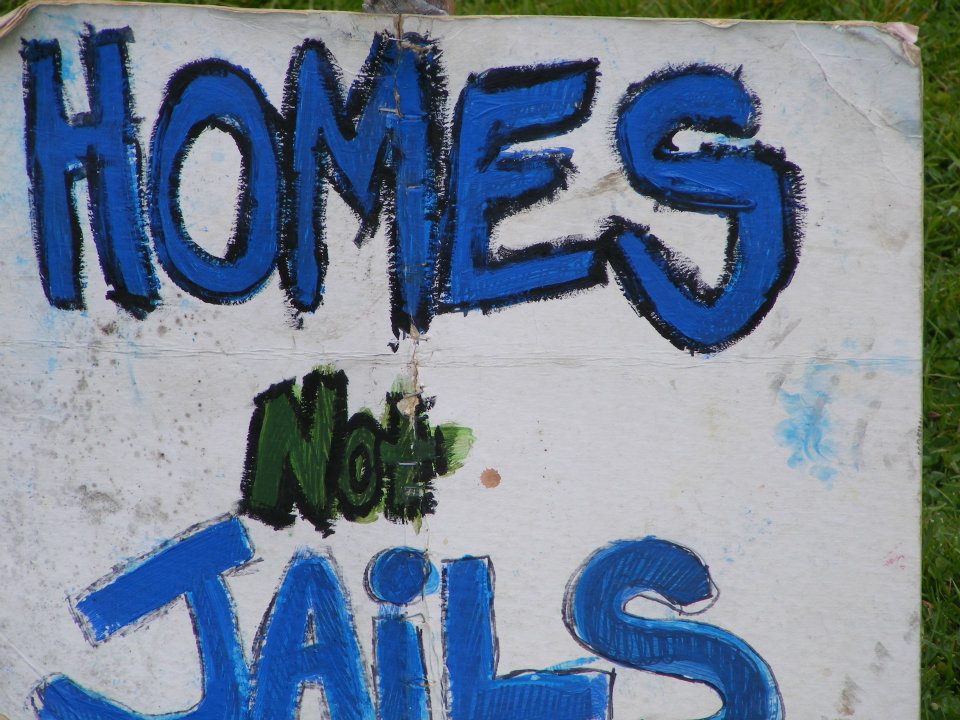 HOMES
Not
JAiLS